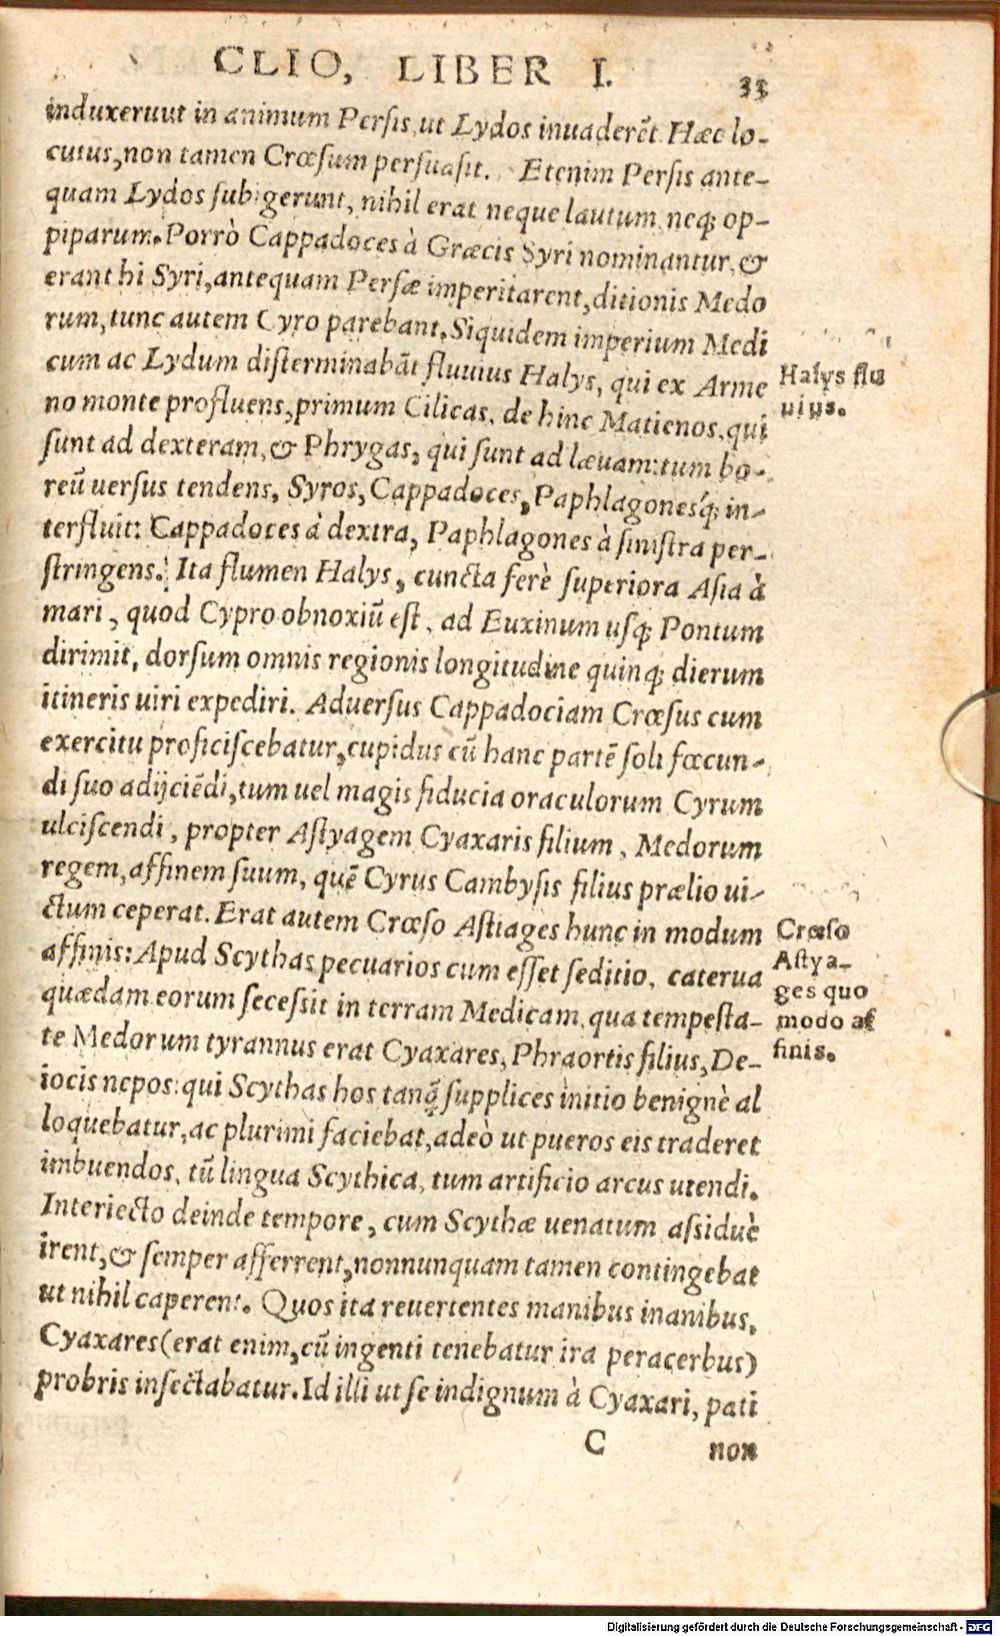 CLIO, LIBER I.
33
induxeruut in animum Persis, ut Lydos inuaderẽt. Hæc lo-
cutus, non tamen Crœsum persuasit. Etenim Persis ante-
quam Lydos subigerunt, nihil erat neque lautum, neqꝫ op-
piparum. Porrò Cappadoces à Græcis Syri nominantur, &
erant hi Syri, antequam Persæ imperitarent, ditionis Medo
rum, tunc autem Cyro parebant. Siquidem imperium Medi
cum ac Lydum disterminabãt fluuius Halys, qui ex Arme
no monte profluens, primum Cilicas, de hinc Matienos, qui
sunt ad dexteram, & Phrygas, qui sunt ad læuam: tum bo-
reũ uersus tendens, Syros, Cappadoces, Paphlagonesqꝫ in-
terfluit: Cappadoces à dextra, Paphlagones à sinistra per-
stringens. Ita flumen Halys, cuncta ferè superiora Asia à
mari, quod Cypro obnoxiũ est, ad Euxinum usqꝫ Pontum
dirimit, dorsum omnis regionis longitudine quinqꝫ dierum
itineris uiri expediri. Aduersus Cappadociam Crœsus cum
exercitu proficiscebatur, cupidus cũ hanc partẽ soli fœcun-
di suo adijciẽdi, tum uel magis fiducia oraculorum Cyrum
ulciscendi, propter Astyagem Cyaxaris filium, Medorum
regem, affinem suum, quẽ Cyrus Cambysis filius prælio ui-
ctum ceperat. Erat autem Crœso Astiages hunc in modum
affinis: Apud Scythas pecuarios cum esset seditio, caterua
quædam eorum secessit in terram Medicam, qua tempesta-
te Medorum tyrannus erat Cyaxares, Phraortis filius, De-
iocis nepos: qui Scythas hos tanq̃ supplices initio benignè al
loquebatur, ac plurimi faciebat, adeò ut pueros eis traderet
imbuendos, tũ lingua Scythica, tum artificio arcus utendi.
Interiecto deinde tempore, cum Scythæ uenatum assiduè
irent, & semper afferrent, nonnunquam tamen contingebat
ut nihil caperent. Quos ita reuertentes manibus inanibus,
Cyaxares (erat enim, cũ ingenti tenebatur ira peracerbus)
probris insectabatur. Id illi ut se indignum à Cyaxari, pati
C non
Halys flu
uius.
Crœso
Astya-
ges quo
modo af
finis.
Digitalisierung gefördert durch die Deutsche Forschungsgemeinschaft - DFG